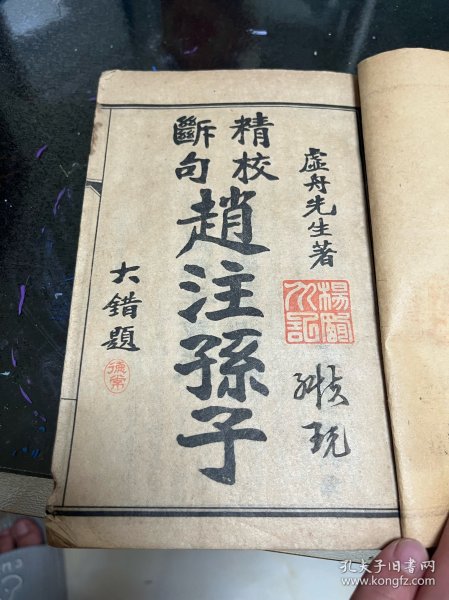 虛舟先生著
精校
斷句
趙注孫子
大錯題
孔夫子旧书网
www.kongfz.com